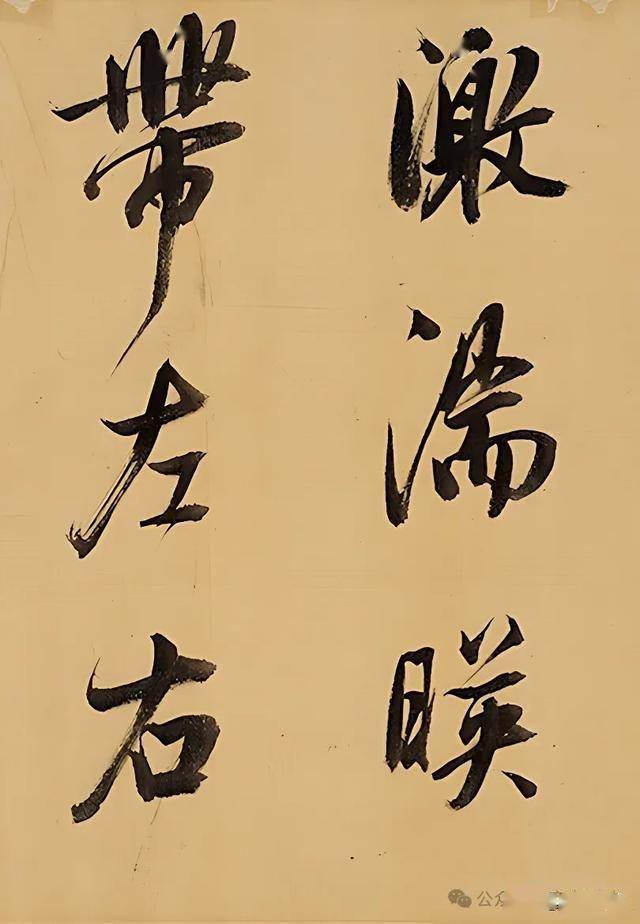 激湍暎
帶左右
公众